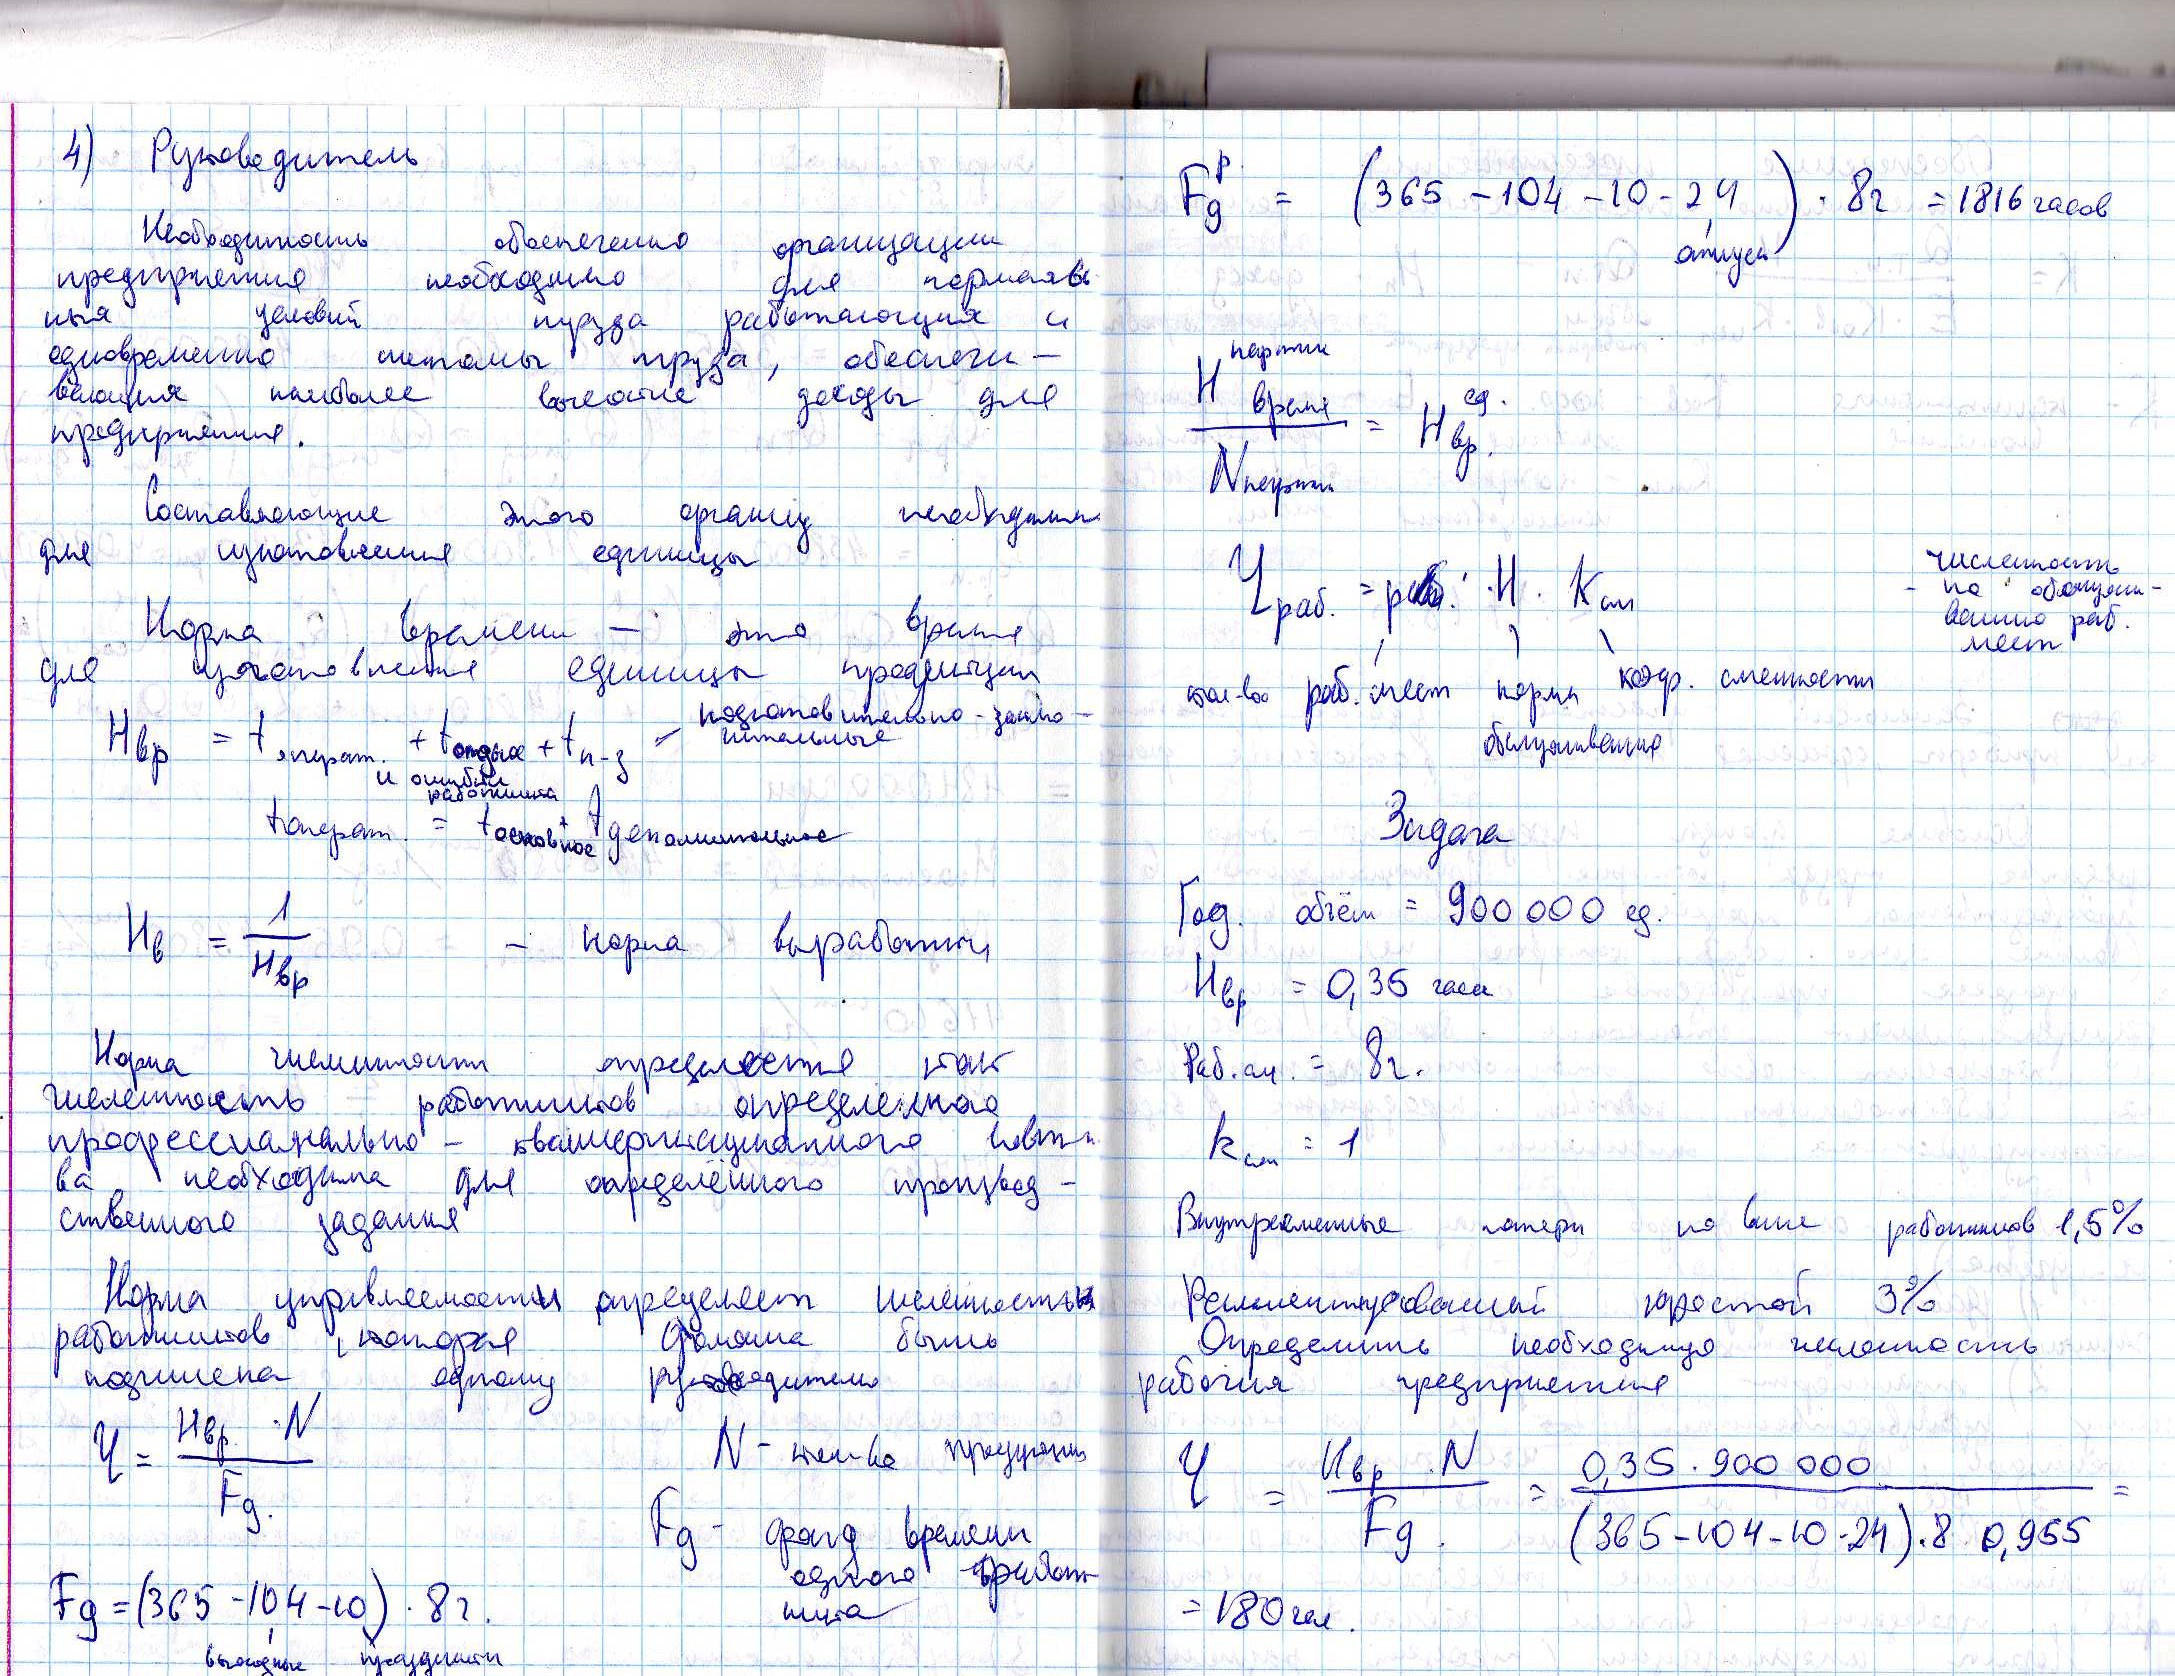 4) Руководитель
Необходимость обеспечено организации
предприятия необходимо для нормальны
ных условий труда работающих и
одновременно системы труда, обеспечи-
вающих наиболее высокие доходы для
предприятия.
Составляющие этого организ необходимы
для изготовления единицы
Норма времени - это время
для изготовления единицы продукции
Нвр = tоперат. + tотдых + tп-з - подготовительно-заклю-
чительные
и ошибки
работника
tоперат. = tосновное + tдополнительное
Нв = 1/Нвр - норма выработки
Норма численности определяется как
численность работников определённого
профессионально-квалификационного
ва необходима для определённого производ-
ственного задания
Норма управляемости определяет численность
работников, которая должна быть
подчинена одному руководителю
Ч = Нвр · N / Fд. N - кол-во продукции
Fд - фонд времени
одного работ
ника
Fд = (365-104-10) · 8ч.
выходные праздники
Fдр. = (365-104-10-24) · 8ч = 1816 часов
отпуск
Н партии время / N партии = Нвр. ед.
Чраб. = раб. · Н · Ксм - численность
по обслужи-
ванию раб.
мест
кол-во раб. мест норма коэф. сменности
обслуживания
Задача
Год. объём = 900 000 ед.
Нвр = 0,35 часа
Раб. см. = 8ч.
kсм = 1
Внутрисменные потери по вине работников 1,5%
Регламентированный простой 3%
Определить необходимую численность
рабочих предприятия
Ч = Нвр · N / Fд. = 0,35 · 900 000 / (365-104-10-24) · 8 · 0,955 =
= 180 чел.